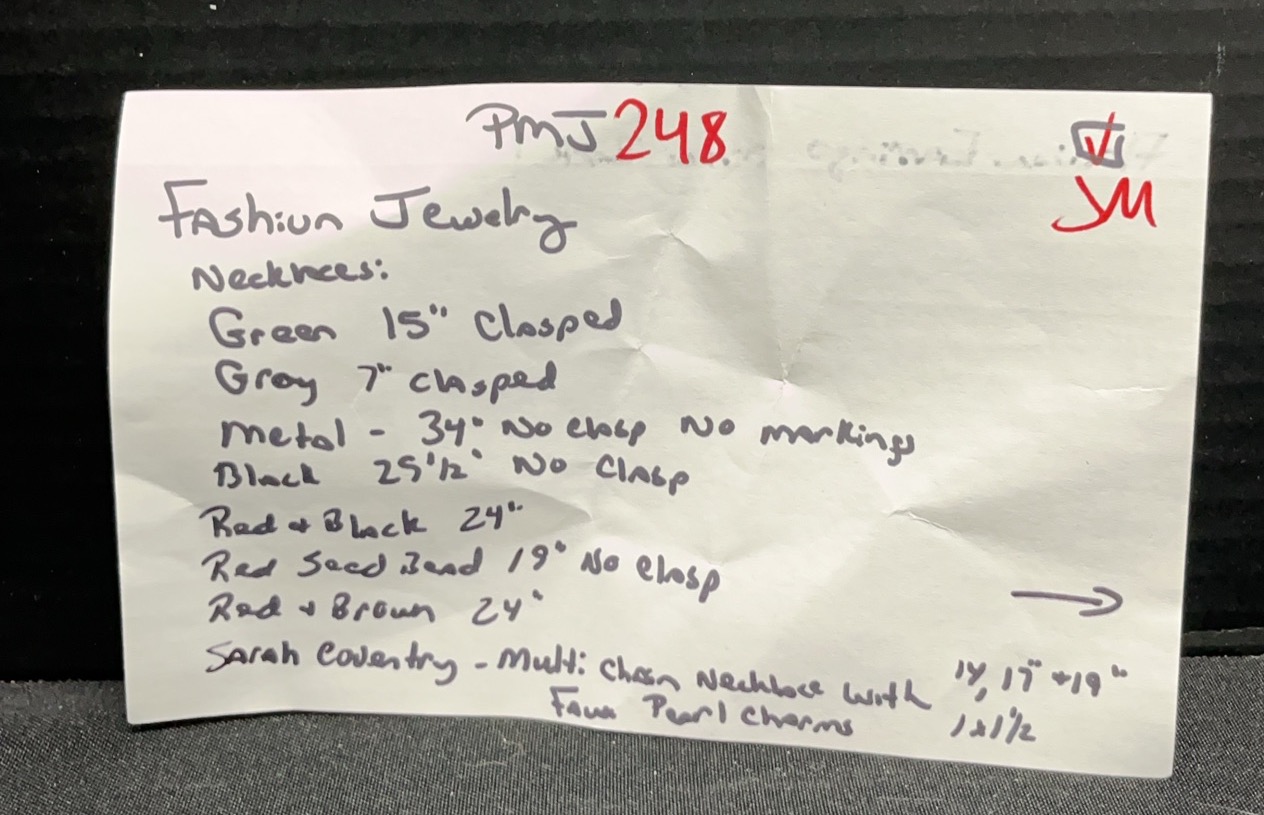 PMJ 248
YM
Fashion Jewelry
Necklaces:
Green 15" Clasped
Gray 7" clasped
Metal - 34" No clasp No markings
Black 25 1/2" No Clasp
Red + Black 24"
Red Seed Bead 19" No Clasp
Red + Brown 24"
Sarah Coventry - Multi Chain Necklace with 14, 17" + 19"
Faux Pearl Charms 1x1 1/2